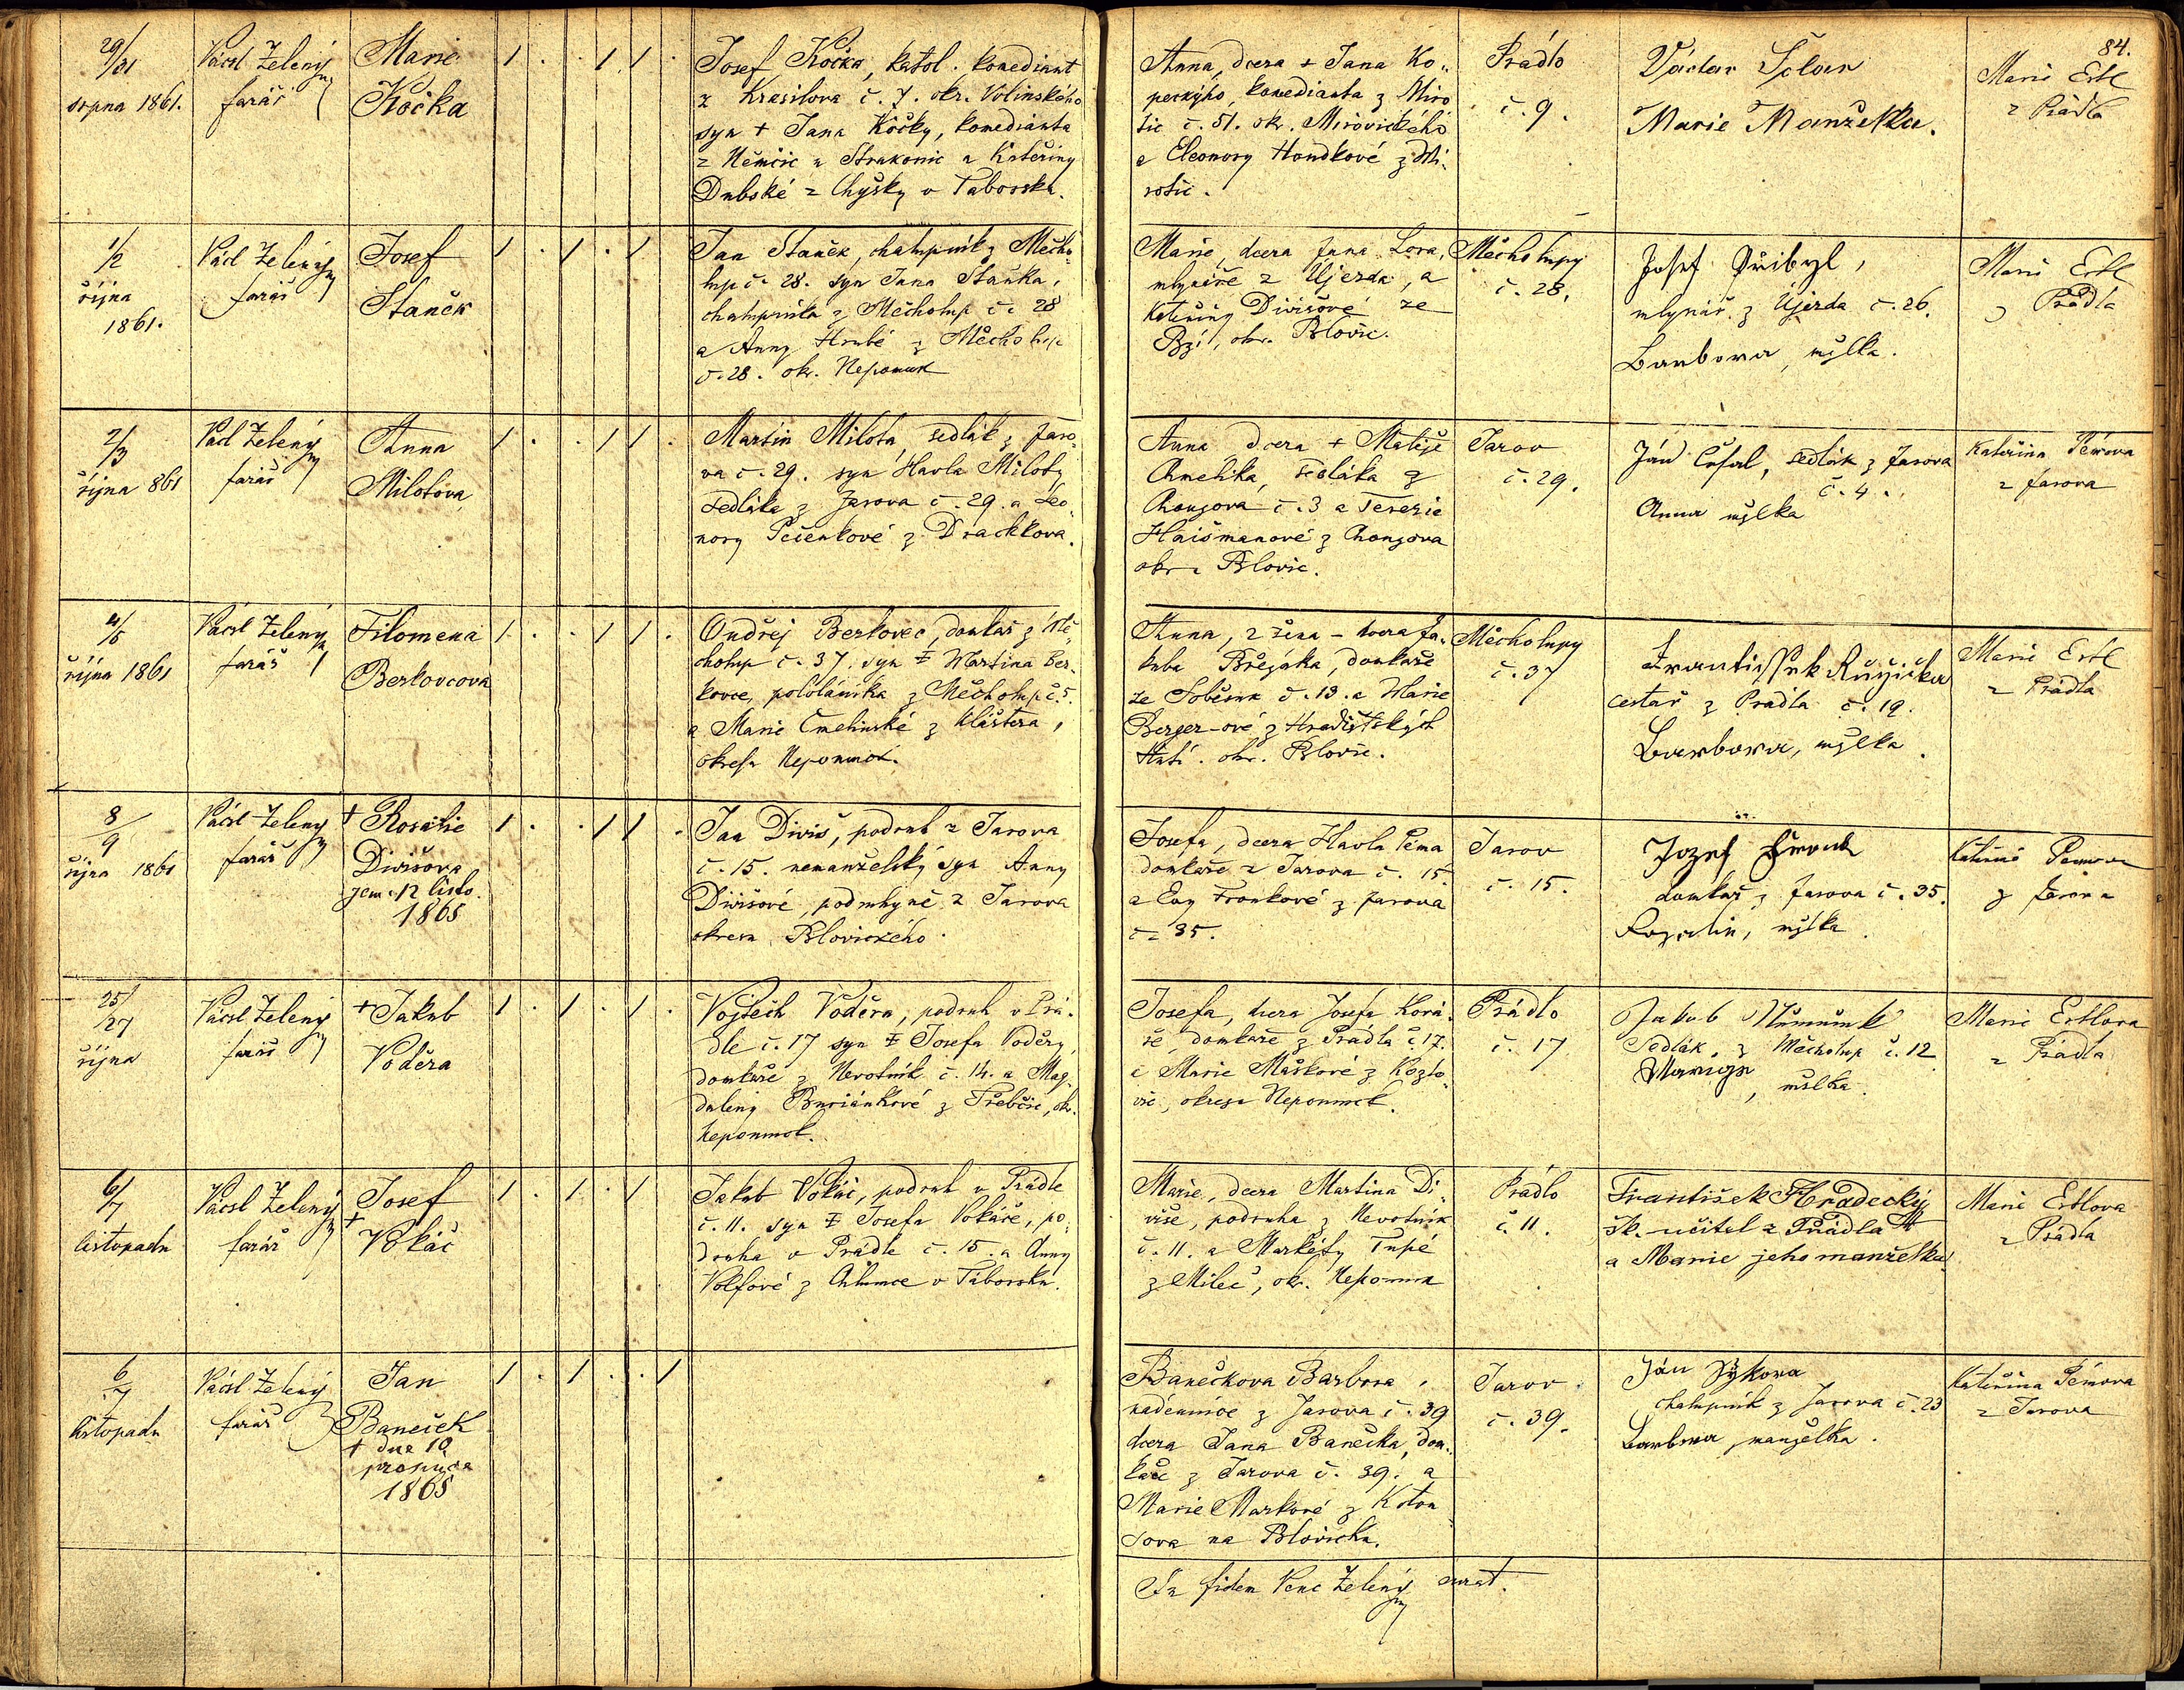 84.
29/31
srpna 1861.
Václ Zelený
farář
Marie
Kočka
Josef Kočka, katol. komediant
z Krasilova č. 7. okr. Volinského
syn + Jana Kočky, komedianta
z Němčic u Strakonic a Kateřiny
Dubské z Chyšky v Táborsku.
Anna, dcera + Jana Ko-
peckýho, komedianta z Miro
tic č. 51. okr. Mirovického
a Eleonory Handkové z Mi-
rotic.
Prádlo
č. 9.
Václav
Marie Manželka.
Marie Ertl
z Prádla
1/2
října
1861.
Václ Zelený
farář
Josef
Staněk
Jan Staněk, chalupník z Mecho-
lup č. 28. syn Jana Staňka,
chalupníka z Měcholup č. 28
a Anny Hrubé z Měcholup
č. 28. okr. Nepomuk
Marie, dcera Jana Lora,
mlynáře z Újezda, a
Kateřiny Divišové ze
okr. Blovic.
Měcholupy
č. 28.
Josef Přibyl,
mlynář z Újezda č. 26.
Barbora, mžlka.
Marie Ertl
z Prádla
2/3
října 861
Václ Zelený
farář
Anna
Milotova
Martin Milota, sedlák z Jaro-
va č. 29. syn Havla Miloty
sedláka z Jarova č. 29. a Leo-
nory Pečenkové z Drachkova.
Anna, dcera + Matěje
Chmelíka, sedláka z
č. 3 a Terezie
Haišmanové z
okr. Blovic.
Jarov
č. 29.
Ján sedlák z Jarova
č. 4.
Anna mžlka
Kateřina Pémova
z Jarova
4/5
října 1861
Václ Zelený
farář
Filomena
Berkovcova
Ondřej Berkovec, domkař z Mě-
cholup č. 37. syn + Martina Ber-
kovce, pololáníka z Měcholup č. 5.
a Marie Čmelinské z Kláštera,
okresu Nepomuk.
Anna, 2 žena - dcera Ja-
kuba domkaře
ze Soběsuk č. 13. a Marie
Berger-ové z Hradištských
Hutí. okr. Blovic.
Měcholupy
č. 37
Frantissek Růžička
cestář z Prádla č. 19.
Barbora, mžlka.
Marie Ertl
z Prádla
8/9
října 1861
Václ Zelený
farář
+ Rosalie
Divišova
zem. 12 listo.
1865
Jan Diviš, podruh z Jarova
č. 15. nemanželský syn Anny
Divišové, podruhyně z Jarova
okresu Blovického.
Josefa, dcera Havla Péma
domkaře z Jarova č. 15.
a Evy Fronkové z Jarova
č. 35.
Jarov
č. 15.
Jozef Fronk
domkař z Jarova č. 35.
Rozalie, mžlka.
Kateřina Pemova
z Jarova
25/27
října
Václ Zelený
farář
+ Jakub
Voděra
Vojtěch Voděra, podruh v Prá-
dle č. 17 syn + Josefa Voděry,
domkaře z Nevotník č. 14. a Mag-
daleny Buriánkové z Třebčic, okr.
Nepomuk.
Josefa, dcera Josefa Ková-
ře, domkaře z Prádla č. 17.
a Marie Maškové z Kozlo-
vic, okresu Nepomuk.
Prádlo
č. 17
Jakub
Sedlák z Měcholup č. 12
Marie, mžlka
Marie Ertlova
z Prádla
6/7
listopadu
Václ Zelený
farář
Josef
+
Vokáč
Jakub Vokáč, podruh v Prádle
č. 11. syn + Josefa Vokáče, po-
druha v Prádle č. 15. a Anny
Volfové z Chlumce v Táborsku.
Marie, dcera Martina Di-
više, podruha z Nevotník
č. 11. a Markéty Tupé
z Mileč, okr. Nepomuk
Prádlo
č. 11.
František Hradecký
šk. učitel z Prádla
a Marie jeho manželka
Marie Ertlova
z Prádla
6/7
listopadu
Václ Zelený
farář
Jan
Baneček
+ dne 10
prosince
1865
Banečkova Barbora,
nádennice z Jarova č. 39
dcera Jana Banečka, dom-
kaře z Jarova č. 39. a
Marie Markové z Koton-
sova na Blovicku.
Jarov
č. 39.
Ján Sýkora
chalupník z Jarova č. 23
Barbora, manželka.
Kateřina Pémova
z Jarova
In fidem Venc Zelený curat.